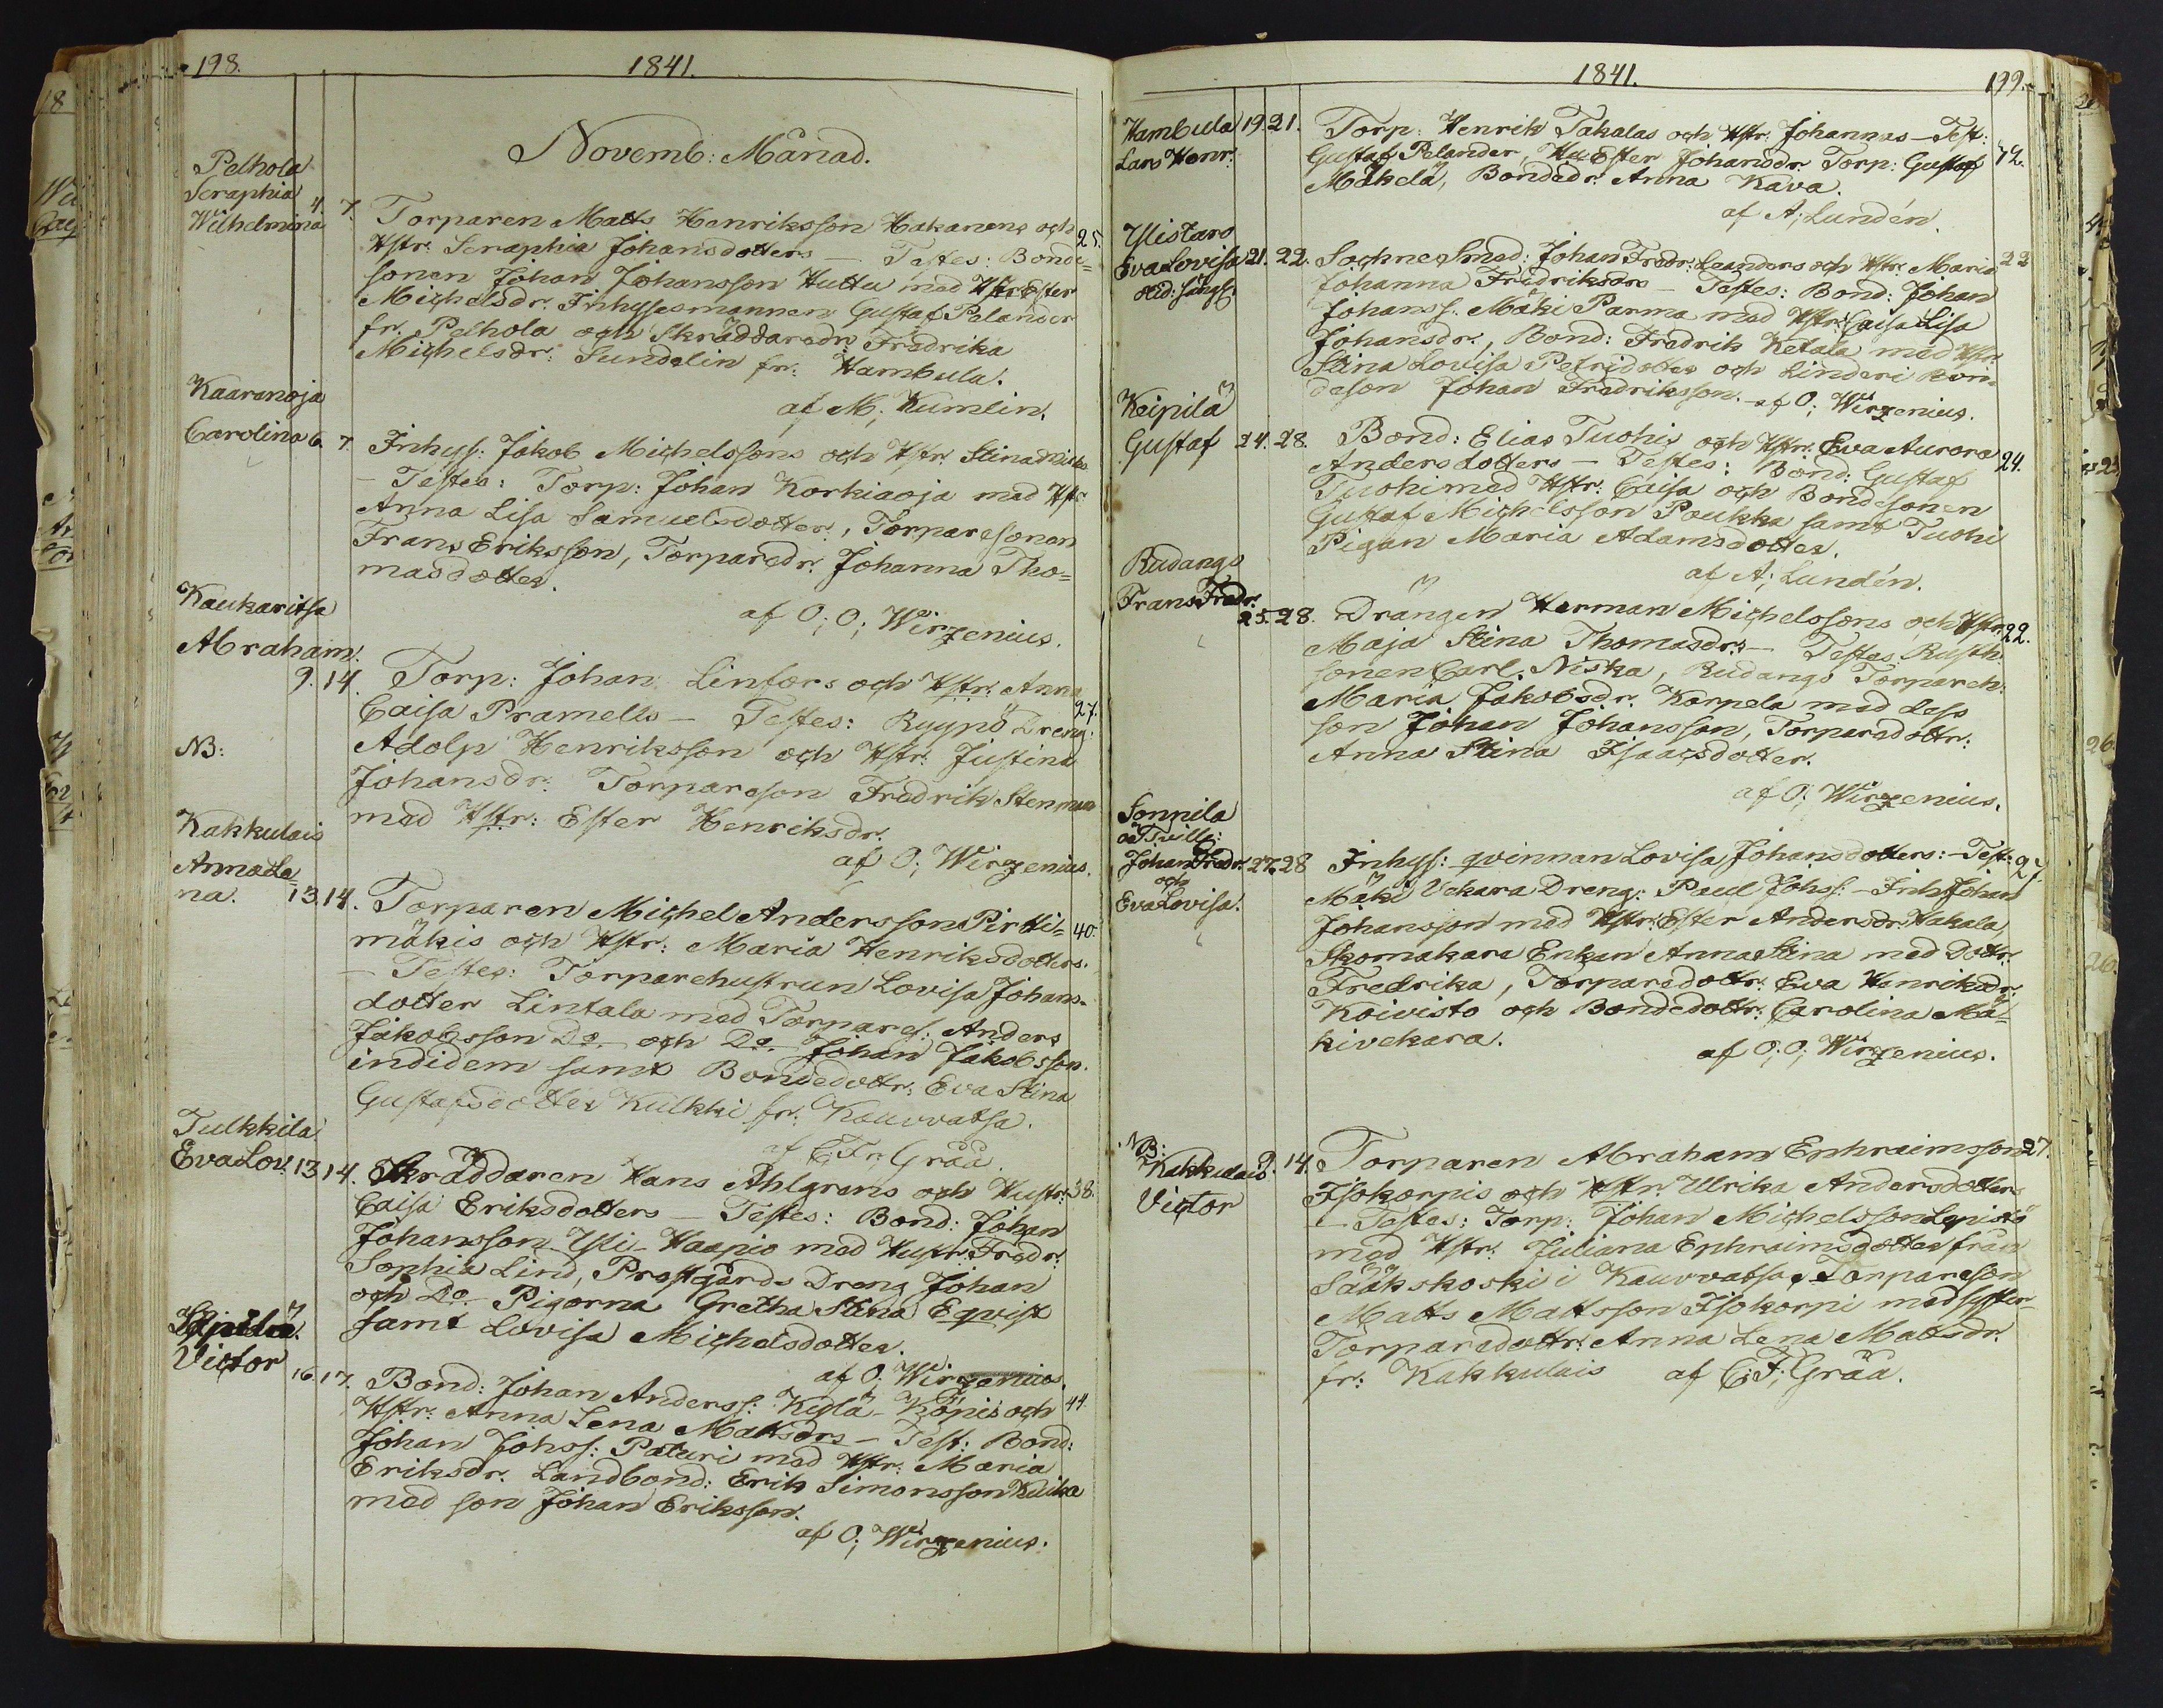 198.
1841.
Novemb: Månad.
Pelhola
Seraphia
Wilhelmina 4. 7. Torparen Matts Henriksson Hakanens och 25.
Hstr: Seraphia Johansdotters — Testes: Bonde=
sonen Johan Johansson Huttu med Hstr Ester
Michelsdr. Inhysesmannen Gustaf Pelander
fr. Pelhola och Skräddaredr: Fredrika
Michelsdr: Sundelin fr: Hambula.
af M; Kumlin.
Kaaranoja
Carolina 6. 7. Inhys: Jakob Michelssons och Hstr. Stina
— Testes: Torp: Johan Korkiaoja med Hstr
Anna Lisa Samuelsdotter, Torparesonen
Frans Eriksson, Torparedr: Johanna Tho=
masdotter.
af O; O; Wirzenius.
Kaukaritsa
Abraham.
9. 14. Torp: Johan Linfors och Hstr: Anna
Caisa Pramells — Testes: Ruypö Dreng: 27.
NB: Adolp Henriksson och Hstr: Justina
Johansdr: Torpareson Fredrik Stenman
med Hstr: Ester Henriksdr.
af O; Wirzenius.
Kakkulais
Anna Le=
na. 13. 14. Torparen Michel Andersson Pirtti= 40.
mäkis och Hstr: Maria Henriksdotters.
— Testes: Torparehustrun Lovisa Johans-
dotter Lintala med Torpares: Anders
Jakobsson Do. och Do. Johan Jakobsson
indidem samt Bondedottr: Eva Stina
Gustafsdotter Kulkki fr: Kauvvatsa.
af C. Fr; Gråå.
Tulkkila
Eva Lov. 13 14. Skräddaren Hans Ahlgrens och Hustr: 38.
Caisa Eriksdotters — Testes: Bond: Johan
Johansson Yli-Haapio med Hustr: Fredr:
Sophia Lind, Prostgårds Dreng Johan
och Do. Pigorna Gretha Stina Eqvist
samt Lovisa Michelsdotter.
af O; Wirzenius.
Victor 16. 17. Bond: Johan Anderss: Kylä-Köpis och 44.
Hstr: Anna Lena Mattsdrs — Test: Bond:
Johan Johss: Paturi med Hstr: Maria
Eriksdr. Landbond: Erik Simonsson Kuika
med son Johan Eriksson.
af O; Wirzenius.
1841.
199.
Hambula 19. 21. Torp: Henrik Takalas och Hstr: Johannas — Test:
Lars Henr: Gustaf Pelander, Hu Ester Johansdr: Torp: Gustaf 72.
Mäkelä, Bondedr: Anna Kava.
af A; Lundén.
Ylistaro
Eva Lovisa 21. 22. Sochne Smed: Johan Fredr: Leanders och Hstr: Maria 22
Johanna Fredriksdrs — Testes: Bond: Johan
Johanss: Mäki Parma med Hstr: Caisa Lisa
Johansdr, Bond: Fredrik Ketala med Hstr:
Stina Lovisa Petridotter och Linderi Bon
deson Johan Fredriksson. — af O; Wirzenius.
Keipilä
Gustaf 24. 28. Bond: Elias Tuohis och Hstr: Eva Aurora
Andersdotters — Testes: Bond: Gustaf 24.
Tuohi med Hstr: Caisa och Bondesonen
Gustaf Michelsson Paukka samt Tuohi
Pigan Maria Adamsdotter.
af A; Lundén.
Rudango
Frans Fredr.
25. 28. Drängen Herman Michelssons och Hstr: 22.
Maja Stina Thomasdr:s — Testes Rusth:
sonen Carl Niska, Rudango Torpareh:
Maria Jakobsdr. Korpela med dess
son Johan Johansson, Torparedottr:
Anna Stina Isaacsdotter.
af O; Wirzenius.
Sonnila
oä Tvill:
Johan Fredr: 27. 28 Inhys: qvinnan Lovisa Johansdotters: — Test: 27.
och
Eva Lovisa.
Mäki Vekara Dreng: Paul Johss: — Inh: Johan
Johansson med Hstr: Ester Andersdr: Hakala,
Skomakare Enkan Anna Stina med Dottr:
Fredrika, Torparedottr: Eva Henriksdr:
Koivisto och Bondedottr: Carolina Mä=
kivekara.
af O; O; Wirzenius.
NB:
Kakkulais 9. 14. Torparen Abraham Ephraimsson 27.
Victor Isokorpis och Hstr: Ulrika Andersdotters
— Testes: Torp: Johan Michelsson Lepistö
med Hstr: Juliana Ephraimsdotter från
Sääkskoski i Kauvvatsa, Torpareson
Matts Mattsson Isokorpi med syster
Torparedottr: Anna Lena Mattsdr.
fr: Kakkulais af C; F; Gråå.